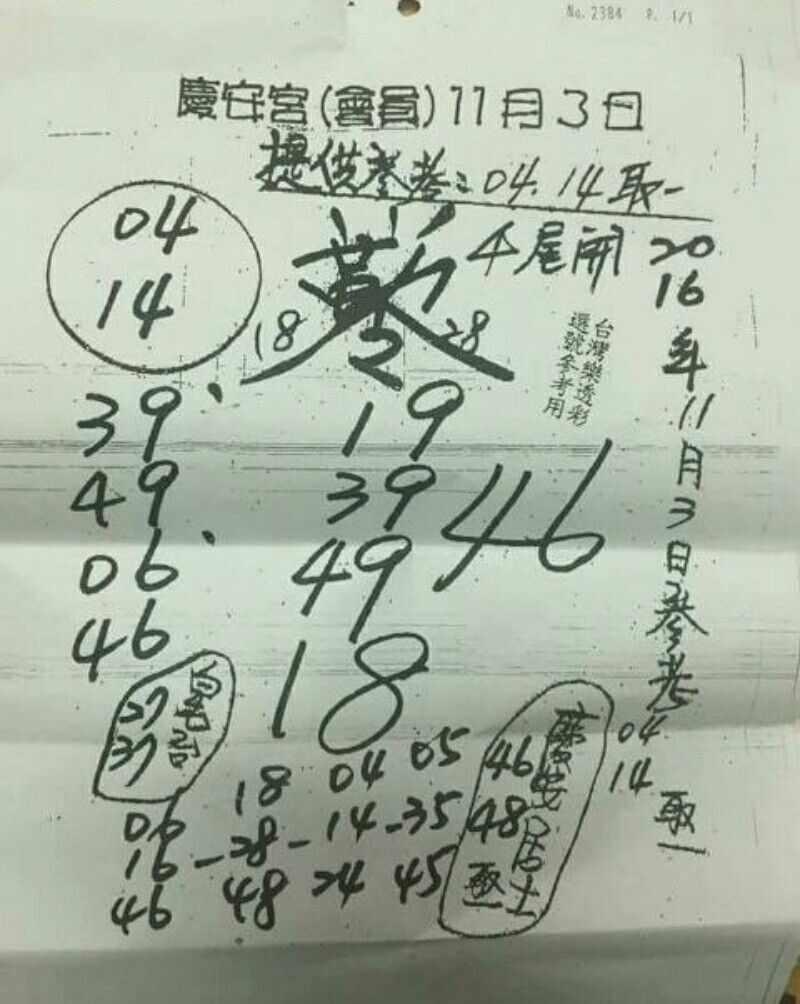 No. 2384 P. 1/1
慶安宮(會員)11月3日
提供參考:04.14取一
04
14
18 28
4尾開
台灣樂透彩
選號參考用
2016年11月3日參考
04
14
取一
39、
49
06、
46
19
39
49
46
18
27
37
慶安居士
46
48
取一
06 18 04 05
16-28-14-35
46 48 24 45